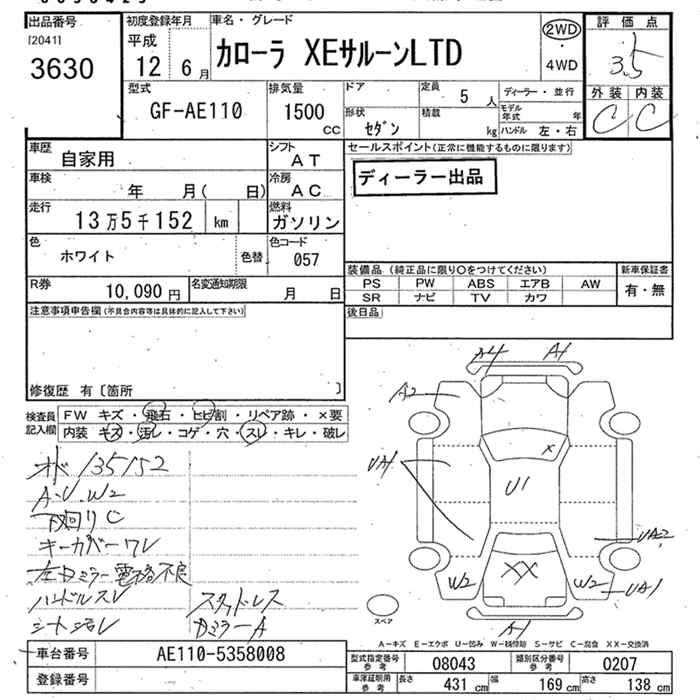 出品番号
[2041]
3630
初度登録年月
平成
12 6月
車名・グレード
カローラ XEサルーンLTD
2WD
・
4WD
評価点
3.5
外装 内装
C C
型式
GF-AE110
排気量
1500
CC
ドア
形状
セダン
定員
5 人
積載
kg
ディーラー・並行
モデル年式 年
ハンドル 左・右
車歴
自家用
シフト
AT
車検
年 月( 日)
冷房
AC
走行
13万5千152 km
燃料
ガソリン
色
ホワイト
色替
色コード
057
R券
10,090 円
名変通知期限
月 日
セールスポイント(正常に機能するものに限ります)
ディーラー出品
装備品(純正品に限り〇をつけてください)
PS PW ABS エアB AW
SR ナビ TV カワ
新車保証書
有・無
後日品
注意事項申告欄(不具合内容等は具体的に記入して下さい)
修復歴 有〔箇所 〕
検査員記入欄
FW キズ・飛石・ヒビ割・リペア跡・×要
内装 キズ・汚レ・コゲ・穴・スレ・キレ・破レ
オド 135152
A・U.W2
下回りC
キーカバーワレ
左ドミラー電格不良
ハンドルスレ
シート汚レ
スタッドレス
Dミラー A
A4 A1
A2
UA1
X
U1
UA2
XX
W2 W2 UA1
A1
スペア
A-キズ E-エクボ U-凹み W-補修跡 S-サビ C-腐食 XX-交換済
車台番号
AE110-5358008
登録番号
型式指定番号 参考
08043
類別区分番号 参考
0207
車庫証明用 参考
長さ 431 cm 幅 169 cm 高さ 138 cm